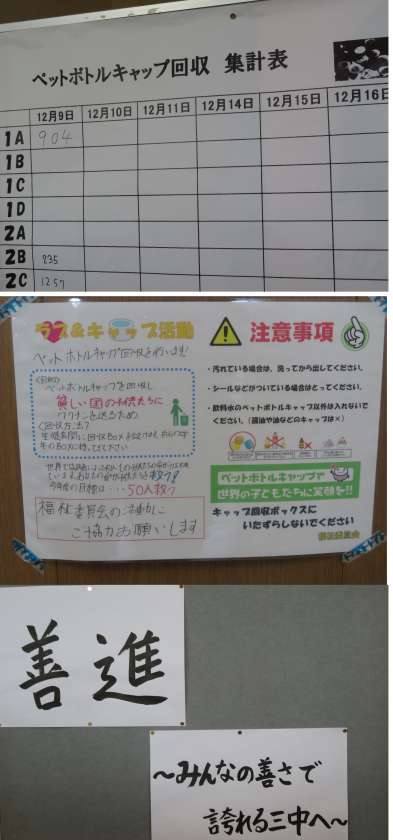 ペットボトルキャップ回収 集計表
12月9日 12月10日 12月11日 12月14日 12月15日 12月16日
1A 904
1B
1C
1D
2A
2B 235
2C 1257
ラス&キャップ活動
ペットボトルキャップ回収を行います!
ペットボトルキャップを回収し
貧しい国の子供たちに
ワクチンを送るため
<回収方法>
50人救う
福祉委員会の活動に
ご協力お願いします
注意事項
・汚れている場合は、洗ってから出してください。
・シールなどがついている場合はとってください。
・飲料水のペットボトルキャップ以外は入れないで
ください。(醤油や油などのキャップは×)
ペットボトルキャップで
世界の子どもたちに笑顔を!!
キャップ回収ボックスに
いたずらしないでください
福祉委員会
善進
~みんなの善さで
誇れる三中へ~